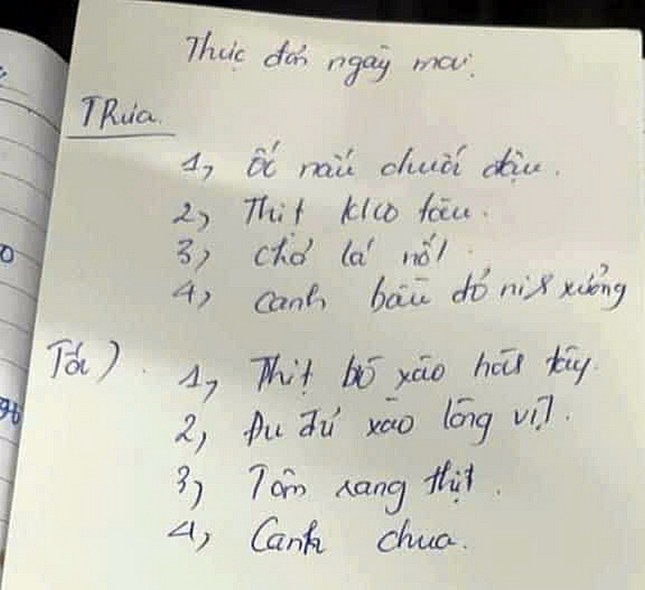 Thực đơn ngày mai.
TRưa.
1, Ốc nấu chuối đậu.
2, Thịt kho tàu.
3, chả lá nốt
4, canh bầu đỏ xương
Tối).
1, Thịt bò xào hành tây.
2, Đu đủ xào lòng vịt.
3, Tôm rang thịt.
4, Canh chua.